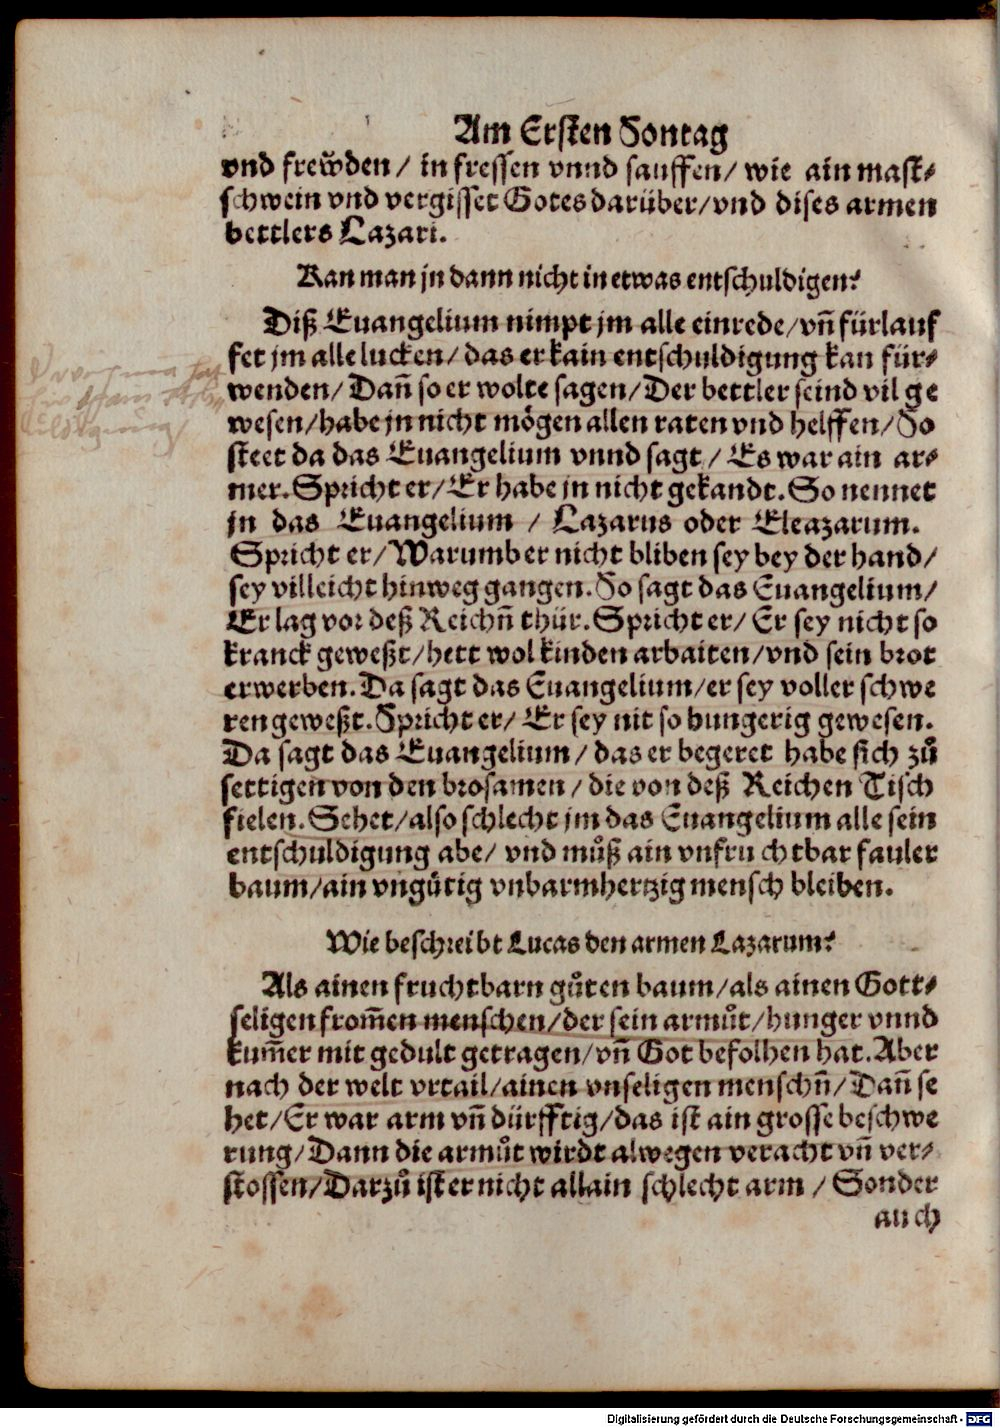 Am Ersten Sontag
vnd frew̆den / in fressen vnnd sauffen / wie ain mast⸗
schwein vnd vergisset Gotes darüber / vnd dises armen
bettlers Lazari.
Kan man jn dann nicht in etwas entschuldigen?
Diß Euangelium nimpt jm alle einrede / vn̄ fürlauf
fet jm alle lucken / das er kain entschuldigung kan für⸗
wenden / Dan̄ so er wolte sagen / Der bettler seind vil ge
wesen / habe jn nicht mögen allen raten vnd helffen / So
steet da das Euangelium vnnd sagt / Es war ain ar⸗
mer. Spricht er / Er habe jn nicht gekandt. So nennet
jn das Euangelium / Lazarus oder Eleazarum.
Spricht er / Warumb er nicht bliben sey bey der hand /
sey villeicht hinweg gangen. So sagt das Euangelium /
Er lag vor deß Reichn̄ thür. Spricht er / Er sey nicht so
kranck geweßt / hett wol kinden arbaiten / vnd sein brot
erwerben. Da sagt das Euangelium / er sey voller schwe
ren geweßt. Spricht er / Er sey nit so hungerig gewesen.
Da sagt das Euangelium / das er begeret habe sich zů
settigen von den brosamen / die von deß Reichen Tisch
fielen. Sehet / also schlecht jm das Euangelium alle sein
entschuldigung abe / vnd můß ain vnfruchtbar fauler
baum / ain vngütig vnbarmhertzig mensch bleiben.
Wie beschreibt Lucas den armen Lazarum?
Als ainen fruchtbarn gůten baum / als ainen Gott⸗
seligen from̄en menschen / der sein armůt / hunger vnnd
kum̄er mit gedult getragen / vn̄ Got befolhen hat. Aber
nach der welt vrtail / ainen vnseligen menschn̄ / Dan̄ se
het / Er war arm vn̄ dürfftig / das ist ain grosse beschwe
rung / Dann die armůt wirdt alwegen veracht vn̄ ver⸗
stossen / Darzů ist er nicht allain schlecht arm / Sonder
auch
Digitalisierung gefördert durch die Deutsche Forschungsgemeinschaft - DFG